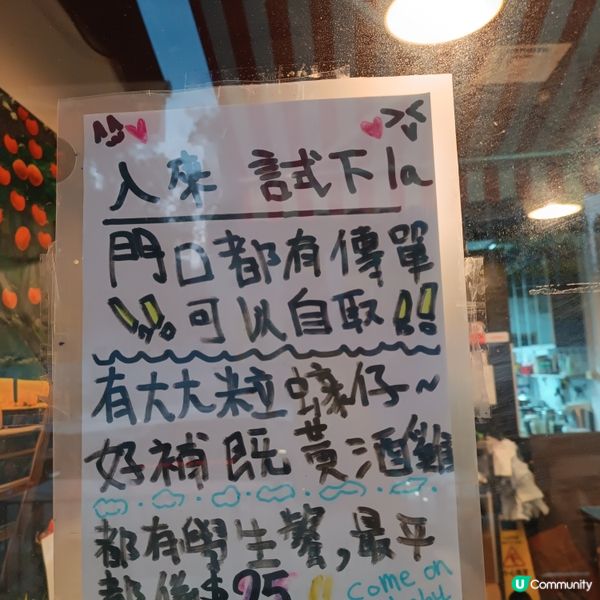 入來 試下la
門口都有傳單
!!可以自取!!
有大大粒蠔仔~
好補既黃酒雞
都有學生餐,最平
都係$25
come on
baby
U Community